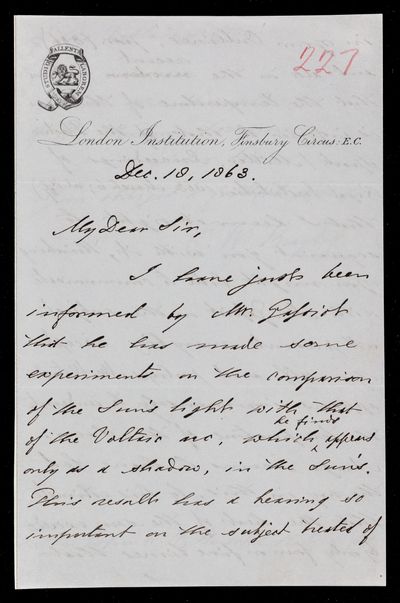 227
London Institution, Finsbury Circus: E.C.
Dec. 18, 1863.
My Dear Sir,
I have just been
informed by Mr. Gassiot
that he has made some
experiments on the comparison
of the Sun's light with that
of the Voltaic arc, which he finds appears
only as a shadow, in the Sun's.
This result has a bearing so
important on the subject treated of